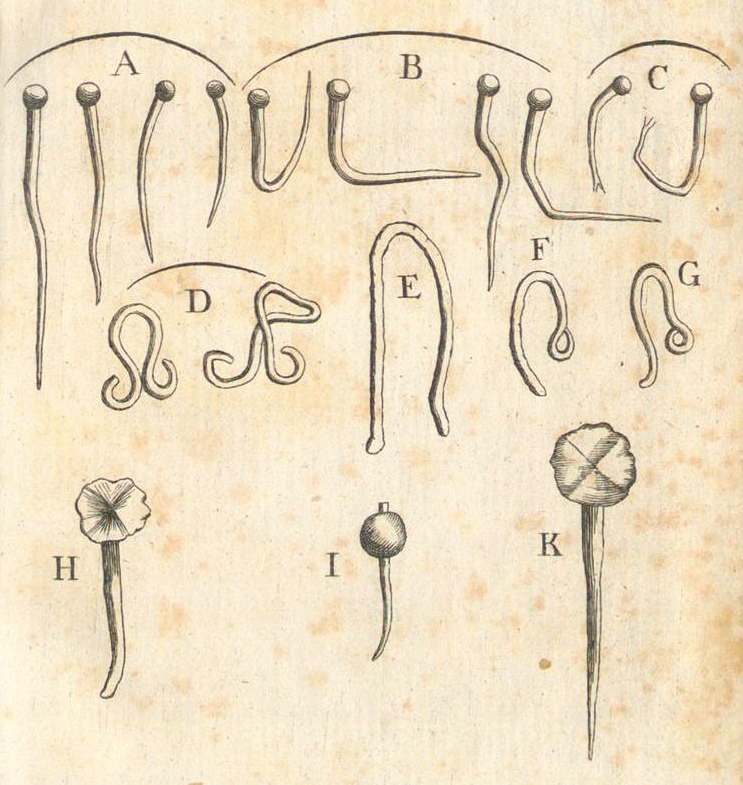 A
B
C
D
E
F
G
H
I
K